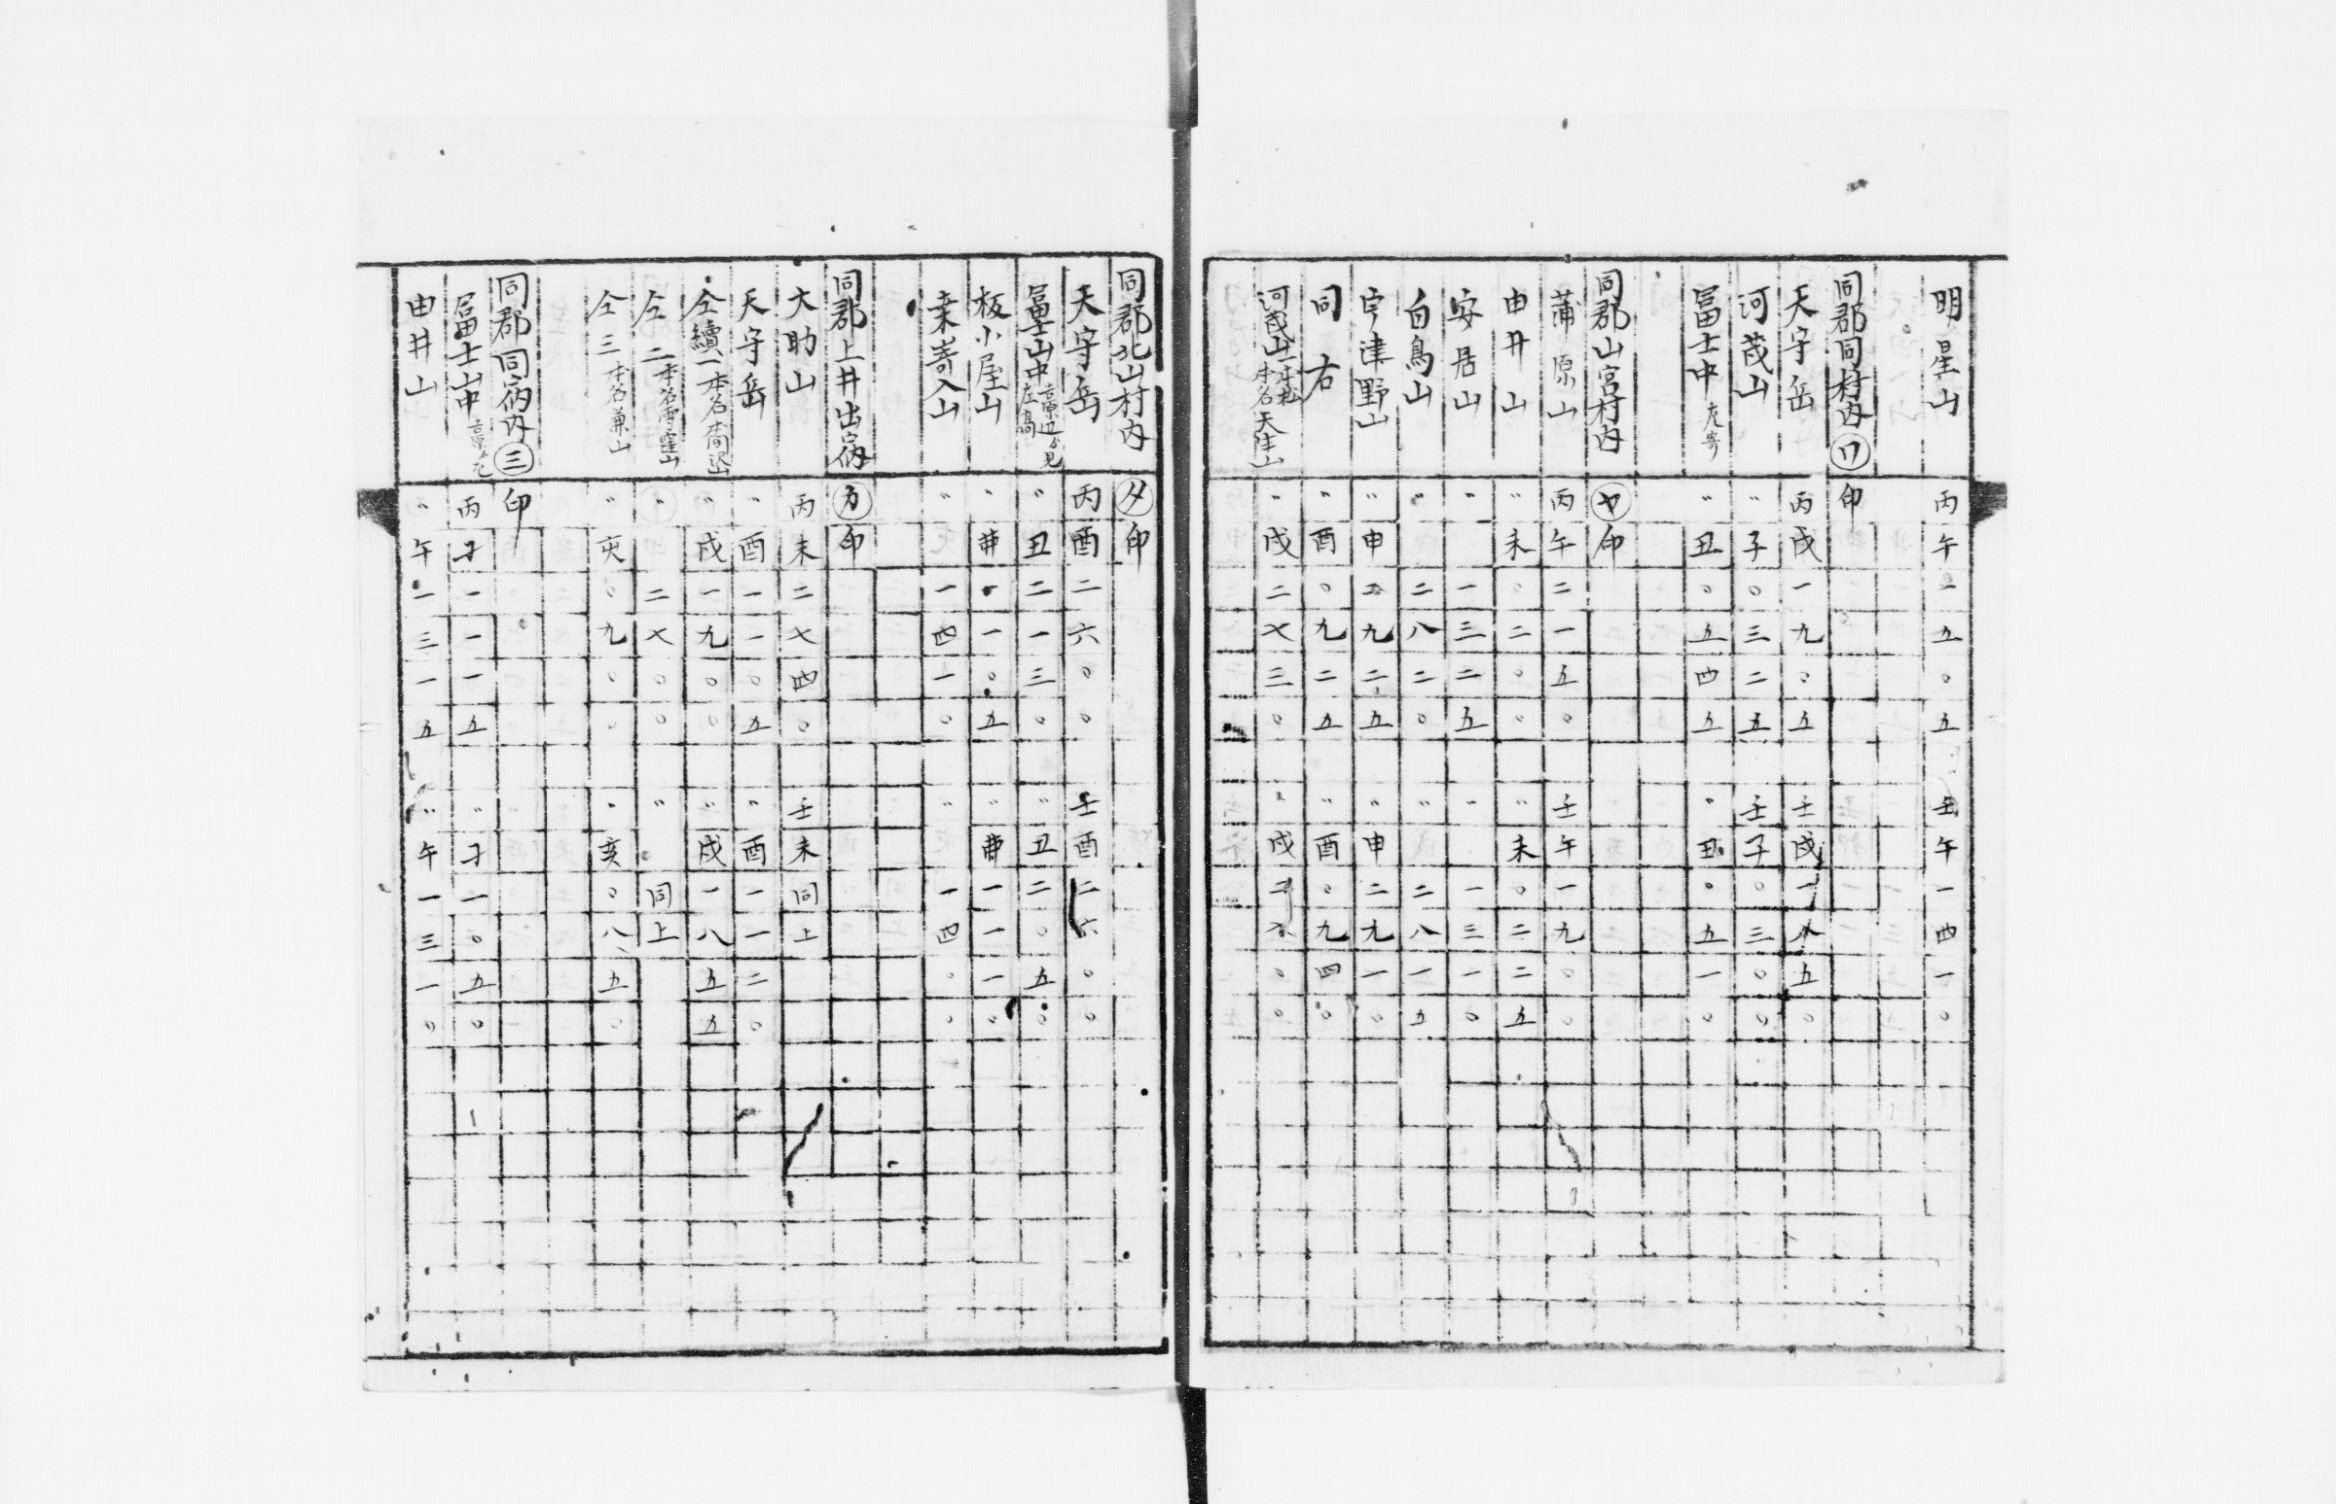 明星山 丙午一五〇五 壬午一四一〇
同郡同村内㋻印
天守岳 丙戌一九〇五 壬戌一八五〇
河茂山 〃子〇三二五 壬子〇三〇〇
冨士中 〃丑〇五四五 〃丑〇五一〇
同郡山宮村内㋳印
蒲原山 丙午二一五〇 壬午一九〇〇
由井山 〃未〇二〇〇 〃未〇二二五
安居山 〃一三二五 〃一三一〇
白鳥山 〃二八二〇 〃二八一五
宇津野山 〃申二九二五 〃申二九一〇
同右 〃酉〇九二五 〃酉〇九四〇
河茂山 本名天陼山 〃戌二七三〇 〃戌二六〇〇
同郡北山村内㋟印
天守岳 丙酉二六〇〇 壬酉二六〇〇
冨士山中 〃丑二一三〇 〃丑二〇五〇
板小屋山 〃一〇五 〃一一一〇
〃一四一〇 〃一四〇〇
同郡上井出㋕印
大助山 丙未二七四〇 壬未同上
天守岳 〃酉一一〇五 〃酉一一二〇
仝續一 〃戌一九〇〇 〃戌一八五五
仝二 〃二七〇〇 〃同上
仝三 本名兼山 〃亥〇九〇〇 〃亥〇八五〇
同郡同 内㊂印
冨士山中 丙子一一一五 〃子一〇五〇
由井山 〃午一三一五 〃午一三一〇